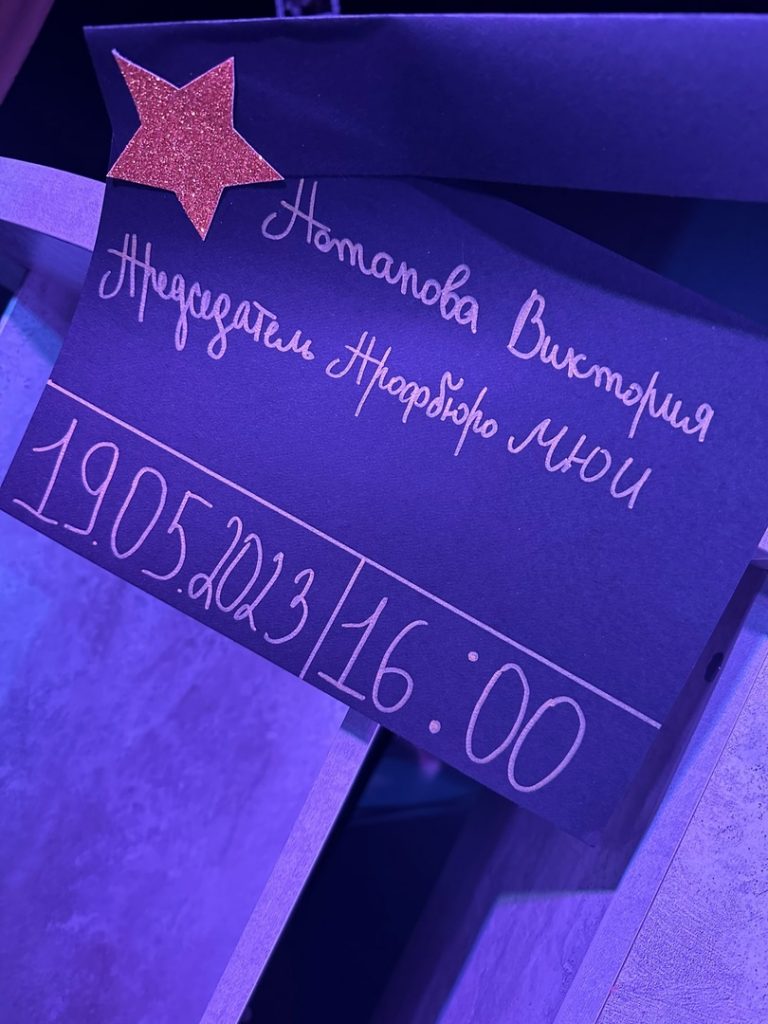 Потапова Виктория
Председатель Профбюро МЮИ
19.05.2023 16:00